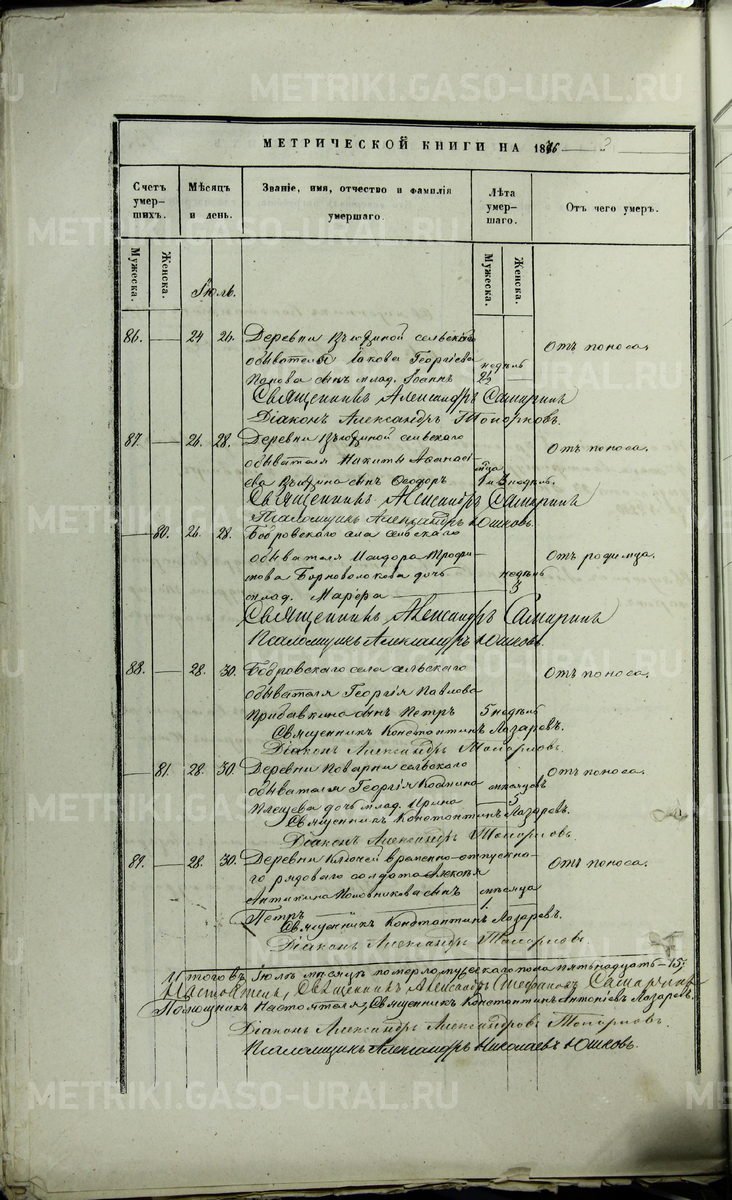 МЕТРИЧЕСКОЙ КНИГИ НА 1876
Счетъ умер-шихъ.
Мѣсяцъ и день.
Званіе, имя, отчество и фамилія умершаго.
Лѣта умер-шаго.
Отъ чего умеръ.
Мужеска.
Женска.
Мужеска.
Женска.
Іюль.
86. — 24 26. Деревни сельскаго
обывателя Іакова Георгіева недѣль Отъ поноса.
Попова сынъ млад. Іоаннъ 2½ —
Священникъ Александръ Самаринъ
Діаконъ Александръ Топорковъ.
87. — 26. 28. Деревни сельскаго Отъ поноса.
обывателя Никиты Аѳанасі-
ева сынъ Ѳеодоръ 1 и 3 недѣл.
Священникъ Александръ Самаринъ
Псаломщикъ Александръ Юшковъ.
— 80. 26. 28. Бобровскаго села сельскаго
обывателя Исидора Трофи- Отъ родимца.
мова Черноволокова дочь недѣль
млад. Марѳа — 3
Священникъ Александръ Самаринъ
Псаломщикъ Александръ Юшковъ.
88. — 28. 30. Бобровскаго села сельскаго Отъ поноса.
обывателя Георгія Павлова
Прибавкина сынъ Петръ 5 недѣль
Священникъ Константинъ Лазаревъ.
Діаконъ Александръ Топорковъ.
— 81. 28. 30. Деревни Поварни сельскаго Отъ поноса.
обывателя Георгія мѣсяцевъ
Плещева дочь млад. Ирина — 5
Священникъ Константинъ Лазаревъ.
Діаконъ Александръ Топорковъ.
89. — 28. 30. Деревни Ключей временно-отпускна- Отъ поноса.
го рядоваго солдата Алексѣя
Антипина Половникова сынъ мѣсяца
Петръ 1.
Священникъ Константинъ Лазаревъ.
Діаконъ Александръ Топорковъ.
Итого въ Іюлѣ мѣсяцѣ померло мужескаго пола пятьнадцать — 15,
Настоятель, Священникъ Александръ Стефановъ Самаринъ
Помощникъ Настоятеля, Священникъ Константинъ Антоніевъ Лазаревъ.
Діаконъ Александръ Александровъ Топорковъ.
Псаломщикъ Александръ Николаевъ Юшковъ.
METRIKI.GASO-URAL.RU